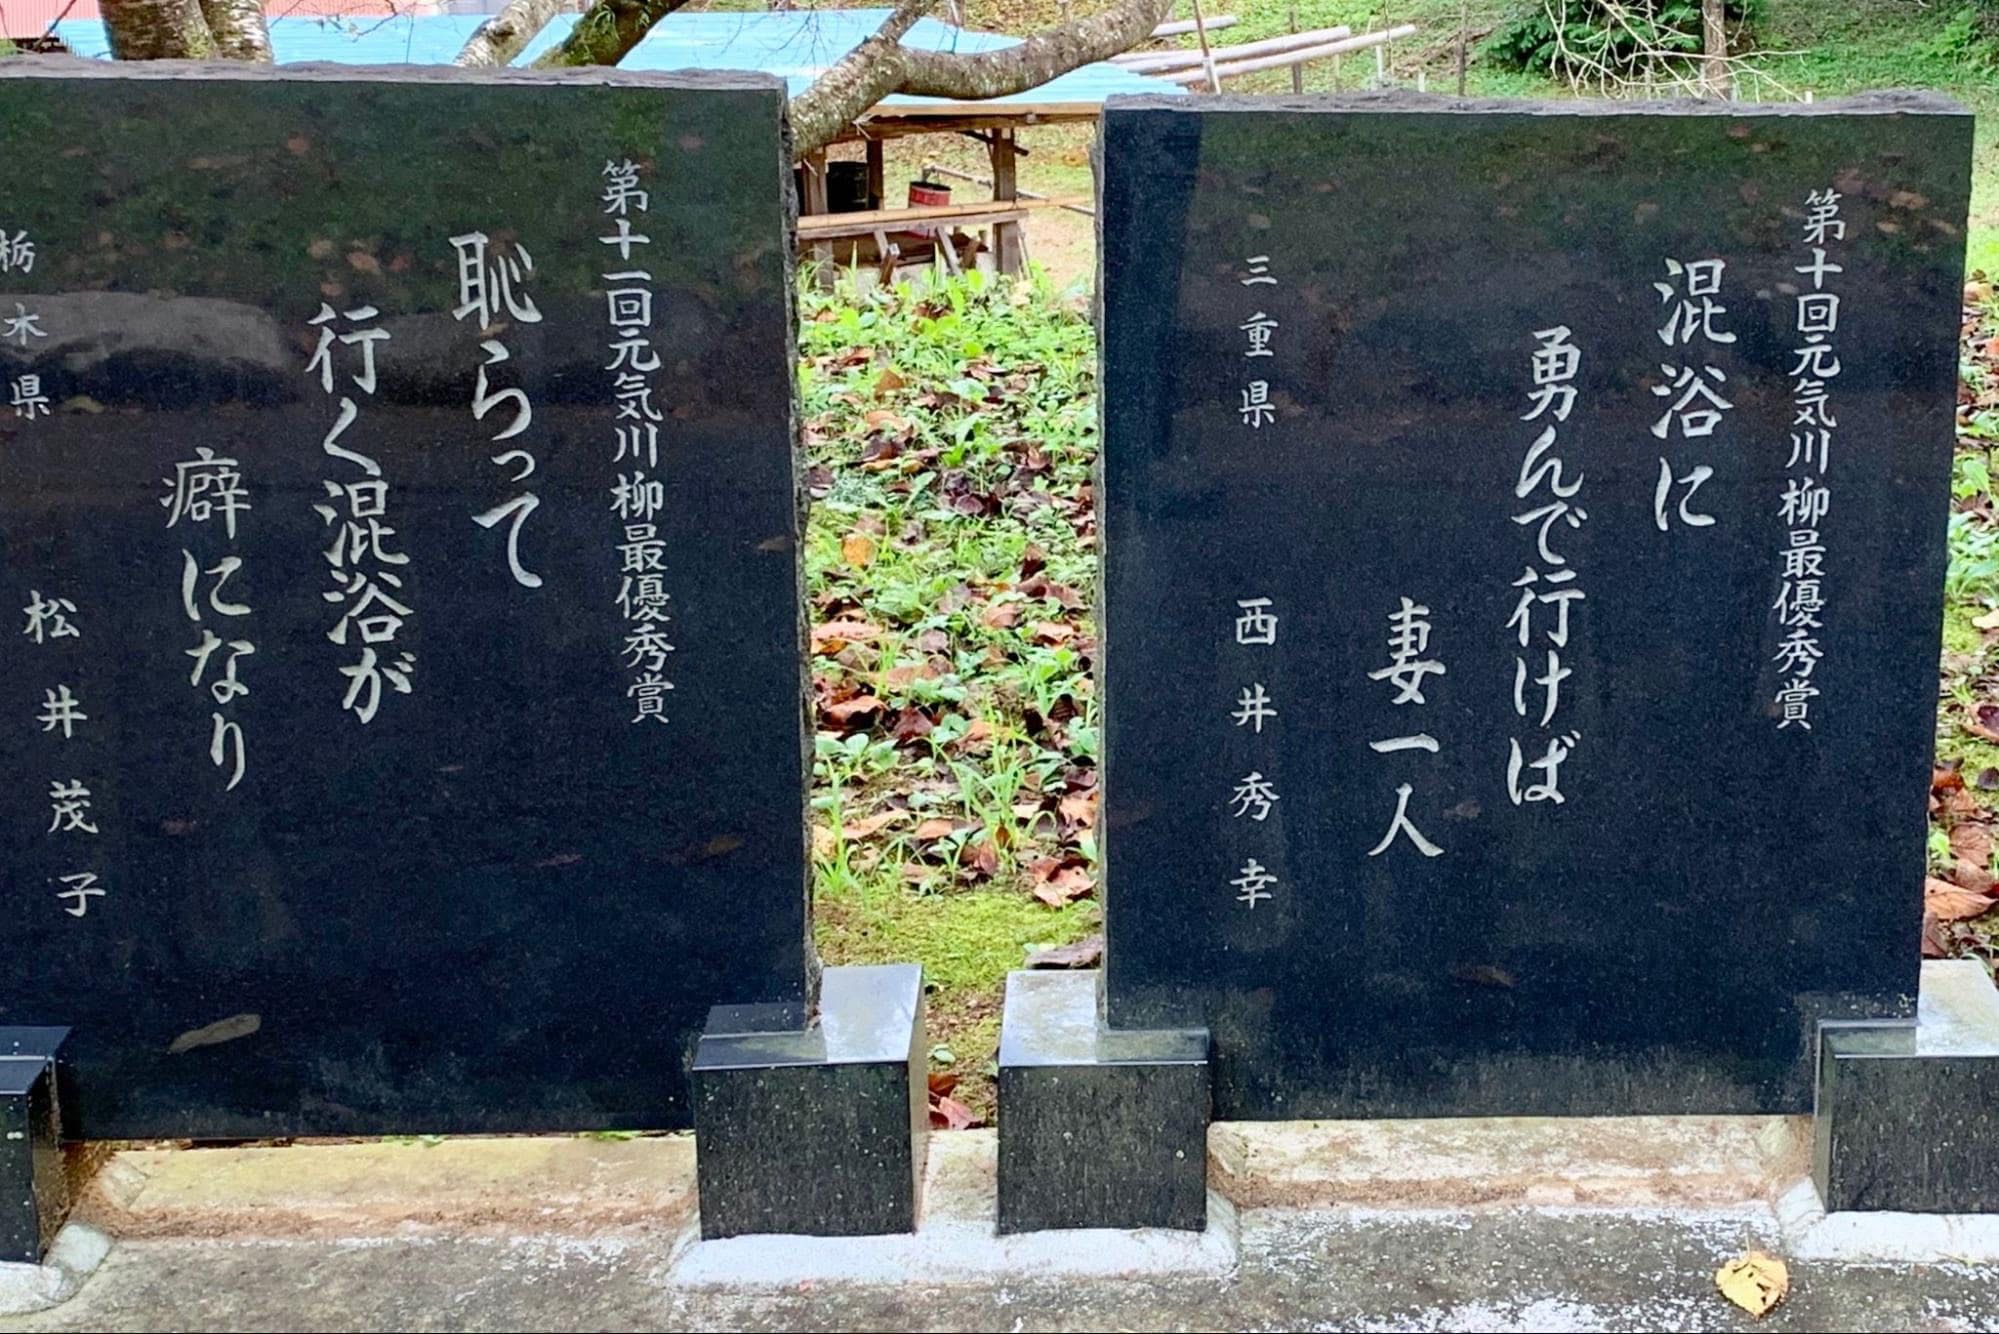 第十回元気川柳最優秀賞
混浴に
勇んで行けば
妻一人
三重県 西井秀幸
第十一回元気川柳最優秀賞
恥らって
行く混浴が
癖になり
栃木県 松井茂子